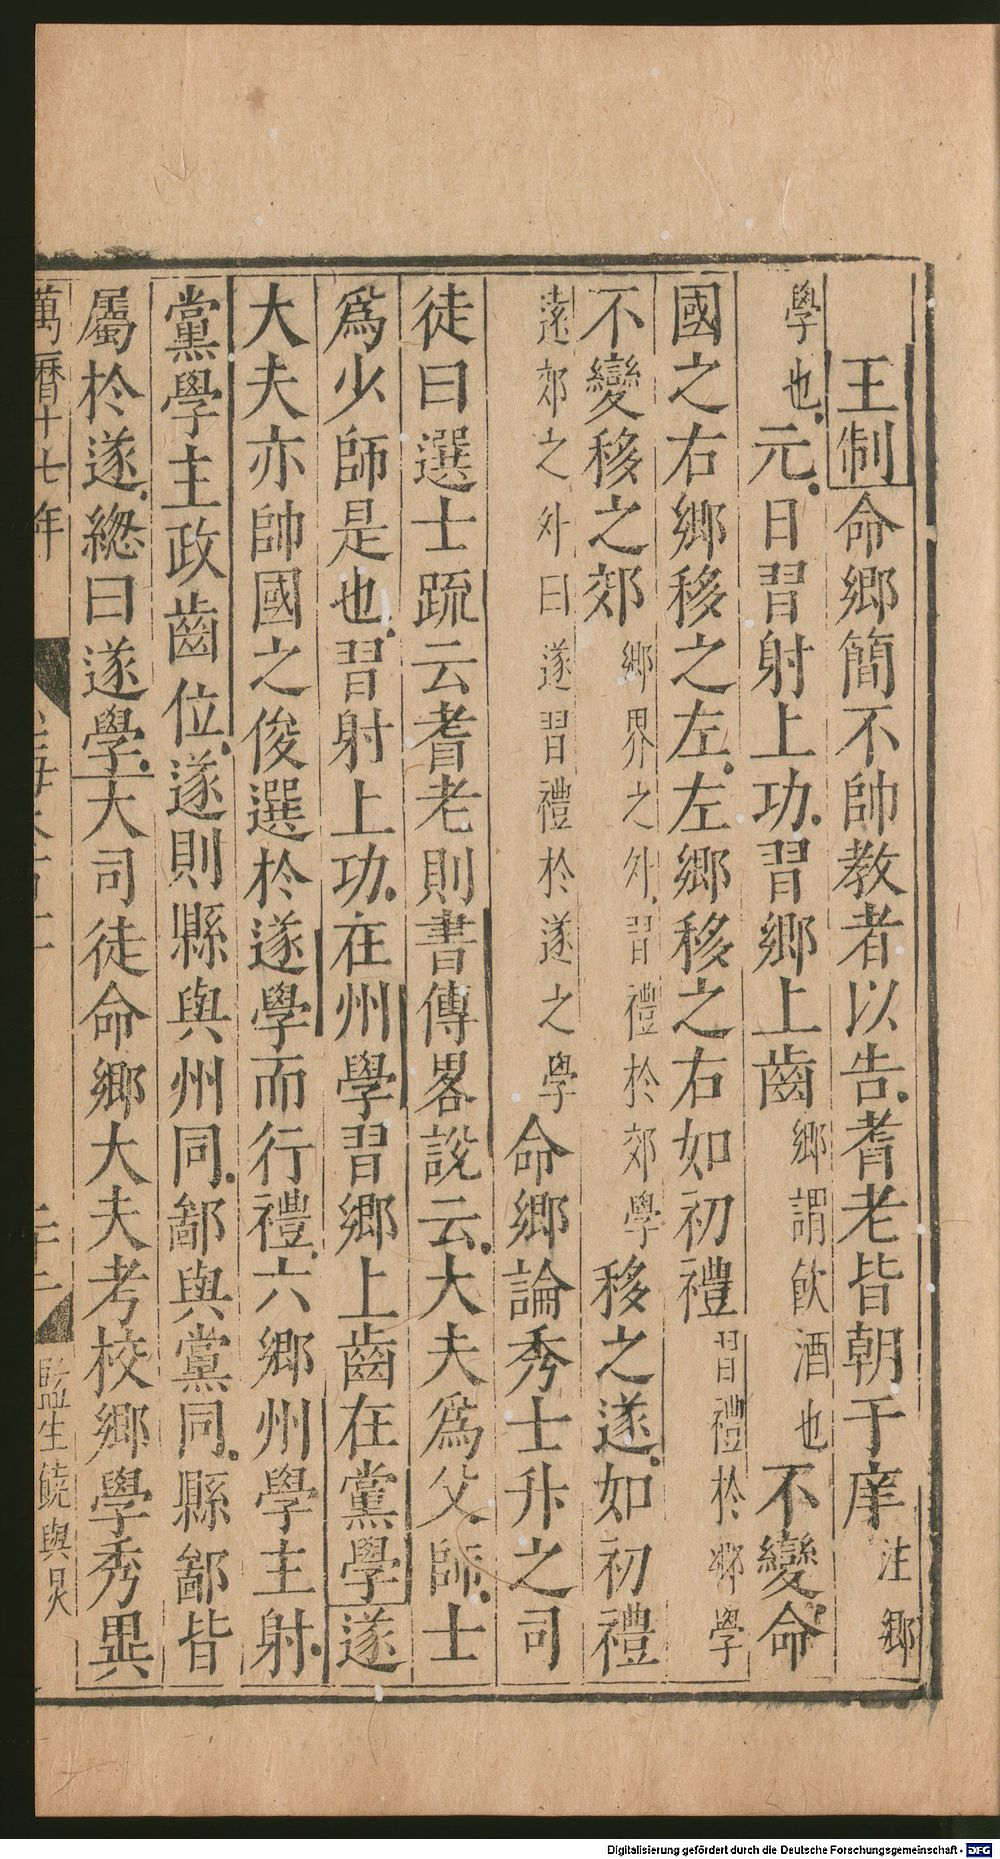 王制命鄉簡不帥教者以告耆老皆朝于庠注鄉
學也元日習射上功習鄉上齒鄉謂飲酒也不變命
國之右鄉移之左左鄉移之右如初禮習禮於鄉學
不變移之郊鄉界之外習禮於郊學移之遂如初禮
遠郊之外曰遂習禮於遂之學命鄉論秀士升之司
徒曰選士疏云耆老則書傳畧說云大夫為父師士
為少師是也習射上功在州學習鄉上齒在黨學遂
大夫亦帥國之俊選於遂學而行禮六鄉州學主射
黨學主政齒位遂則縣與州同鄙與黨同縣鄙皆
屬於遂總曰遂學大司徒命鄉大夫考校鄉學秀異
萬曆十七年 監生饒與
Digitalisierung gefördert durch die Deutsche Forschungsgemeinschaft - DFG